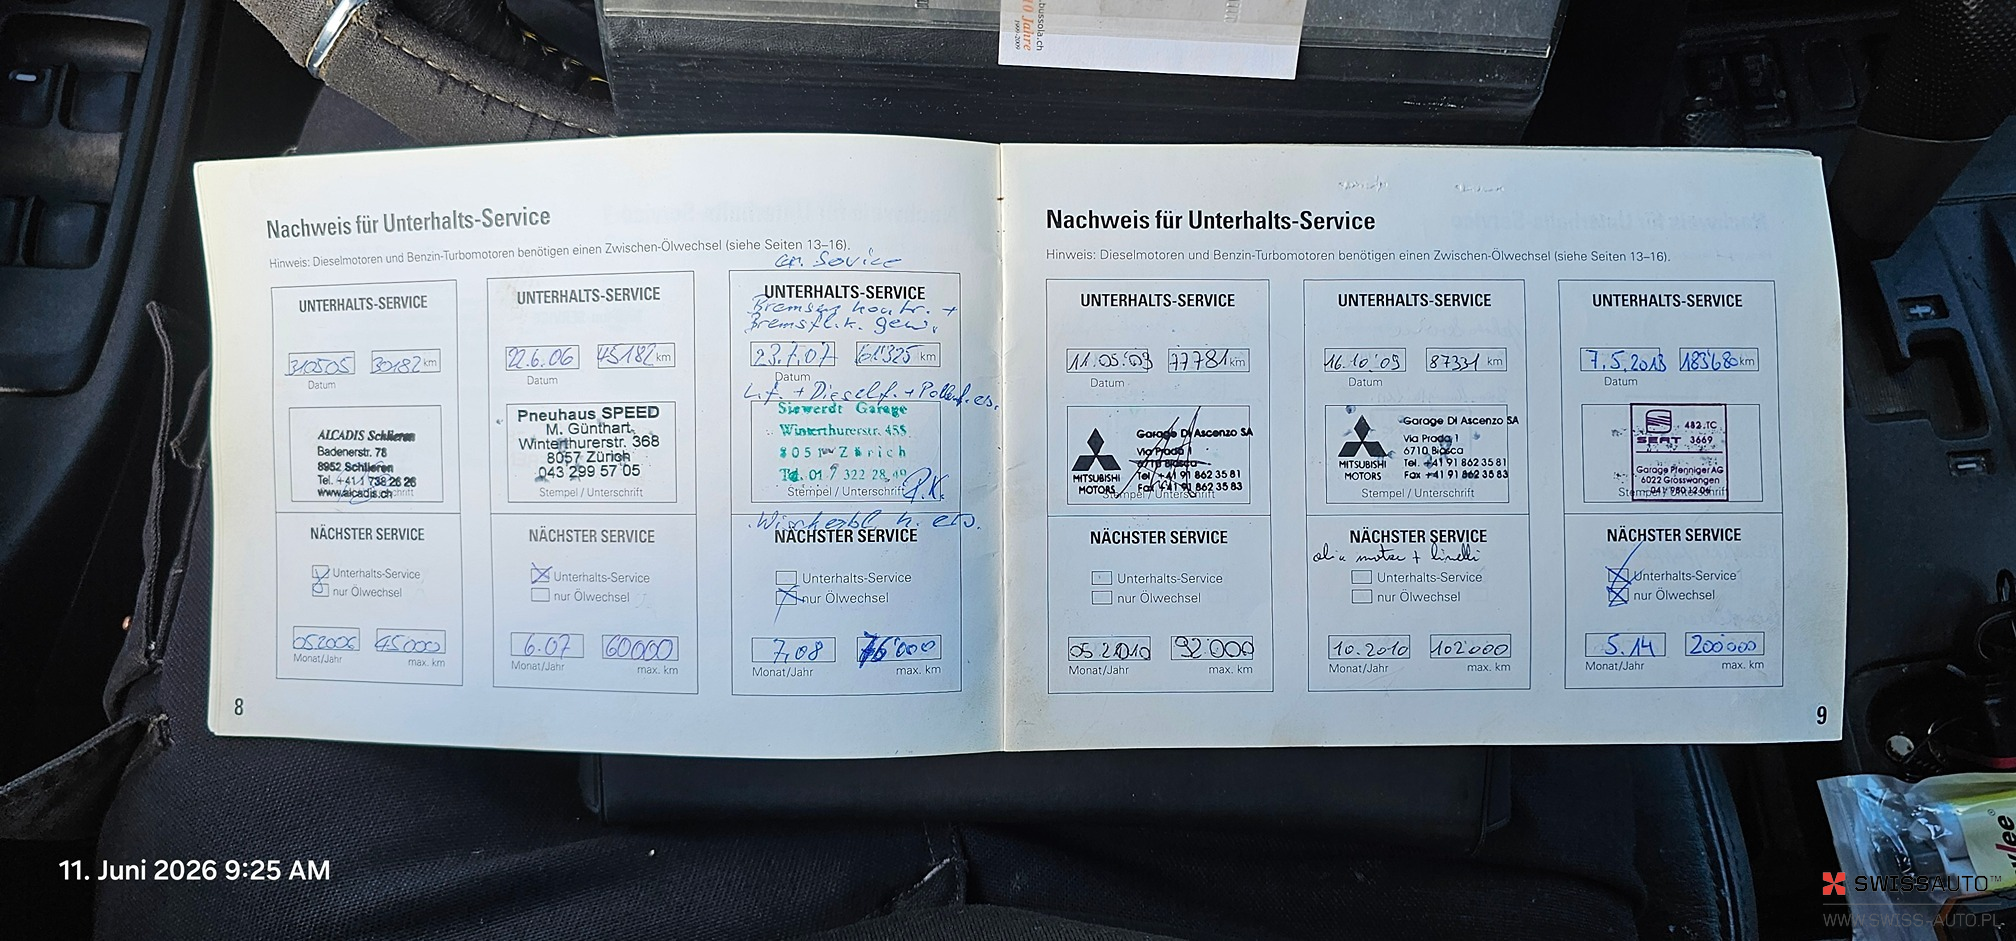 bussola.ch
10 Jahre
1999-2009
Nachweis für Unterhalts-Service
Hinweis: Dieselmotoren und Benzin-Turbomotoren benötigen einen Zwischen-Ölwechsel (siehe Seiten 13–16).
Gr. Service
UNTERHALTS-SERVICE
310505 30182 km
Datum
ALCADIS Schlieren
Badenerstr. 78
8952 Schlieren
Tel. +41-1 738 26 26
www.alcadis.ch
NÄCHSTER SERVICE
Unterhalts-Service
nur Ölwechsel
052006 45000
Monat/Jahr max. km
UNTERHALTS-SERVICE
22.6.06 45182 km
Datum
Pneuhaus SPEED
M. Günthart
Winterthurerstr. 368
8057 Zürich
043 299 57 05
Stempel / Unterschrift
NÄCHSTER SERVICE
Unterhalts-Service
nur Ölwechsel
6.07 60000
Monat/Jahr max. km
UNTERHALTS-SERVICE
Bremsen kontr. +
Bremsfl.k. gew.
23.7.07 61'325 km
Datum
L.f. + Dieself. + Pollenf. ers.
Siewerdt Garage
Winterthurerstr. 455
8051 Zürich
Tel. 01 322 28
Stempel / Unterschrift
Wischerbl. h. ers.
NÄCHSTER SERVICE
Unterhalts-Service
nur Ölwechsel
7.08 76'000
Monat/Jahr max. km
8
Nachweis für Unterhalts-Service
Hinweis: Dieselmotoren und Benzin-Turbomotoren benötigen einen Zwischen-Ölwechsel (siehe Seiten 13–16).
UNTERHALTS-SERVICE
11.05.'09 77781 km
Datum
Garage Di Ascenzo SA
Via Prada 1
6710 Biasca
Tel. +41 91 862 35 81
Fax +41 91 862 35 83
MITSUBISHI
MOTORS
Stempel / Unterschrift
NÄCHSTER SERVICE
Unterhalts-Service
nur Ölwechsel
05.2010 92'000
Monat/Jahr max. km
UNTERHALTS-SERVICE
16.10'09 87331 km
Datum
Garage Di Ascenzo SA
Via Prada 1
6710 Biasca
Tel. +41 91 862 35 81
Fax +41 91 862 35 83
MITSUBISHI
MOTORS
Stempel / Unterschrift
NÄCHSTER SERVICE
olio motore + livelli
Unterhalts-Service
nur Ölwechsel
10.2010 102'000
Monat/Jahr max. km
UNTERHALTS-SERVICE
7.5.2013 183'680 km
Datum
482.TC
SEAT 3669
Garage Pfenniger AG
6022 Grosswangen
041 980 12 06
Stempel / Unterschrift
NÄCHSTER SERVICE
Unterhalts-Service
nur Ölwechsel
5.14 200'000
Monat/Jahr max. km
9
11. Juni 2026 9:25 AM
SWISSAUTO™
WWW.SWISS-AUTO.PL